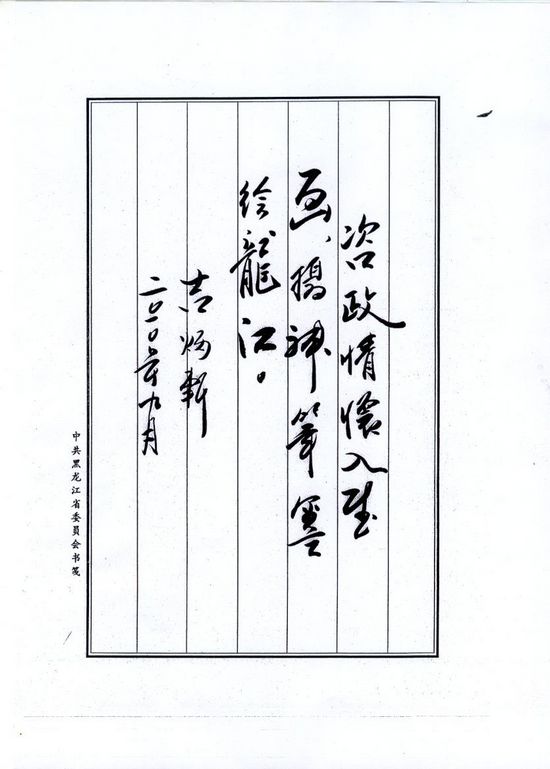 咨政情怀入胜
画、搁神笔墨
绘龍江。
吉炳軒
二〇一〇年九月
中共黑龙江省委員会书笺